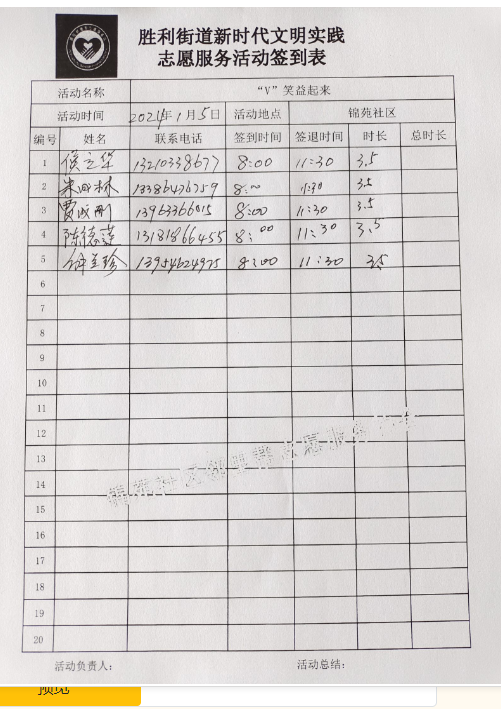 胜利街道新时代文明实践
志愿服务活动签到表
活动名称 “V”笑益起来
活动时间 2024年1月5日 活动地点 锦苑社区
编号 姓名 联系电话 签到时间 签退时间 时长 总时长
1 侯立华 13210338677 8:00 11:30 3.5
2 朱成林 13386476759 8:00 11:30 3.5
3 贾成刚 13963366015 8:00 11:30 3.5
4 陈德莲 13181866455 8:00 11:30 3.5
5 珍 13954624975 8:00 11:30 3.5
6
7
8
9
10
11
12
13
14
15
16
17
18
19
20
锦苑社区邻里帮志愿服务
活动负责人: 活动总结:
预览